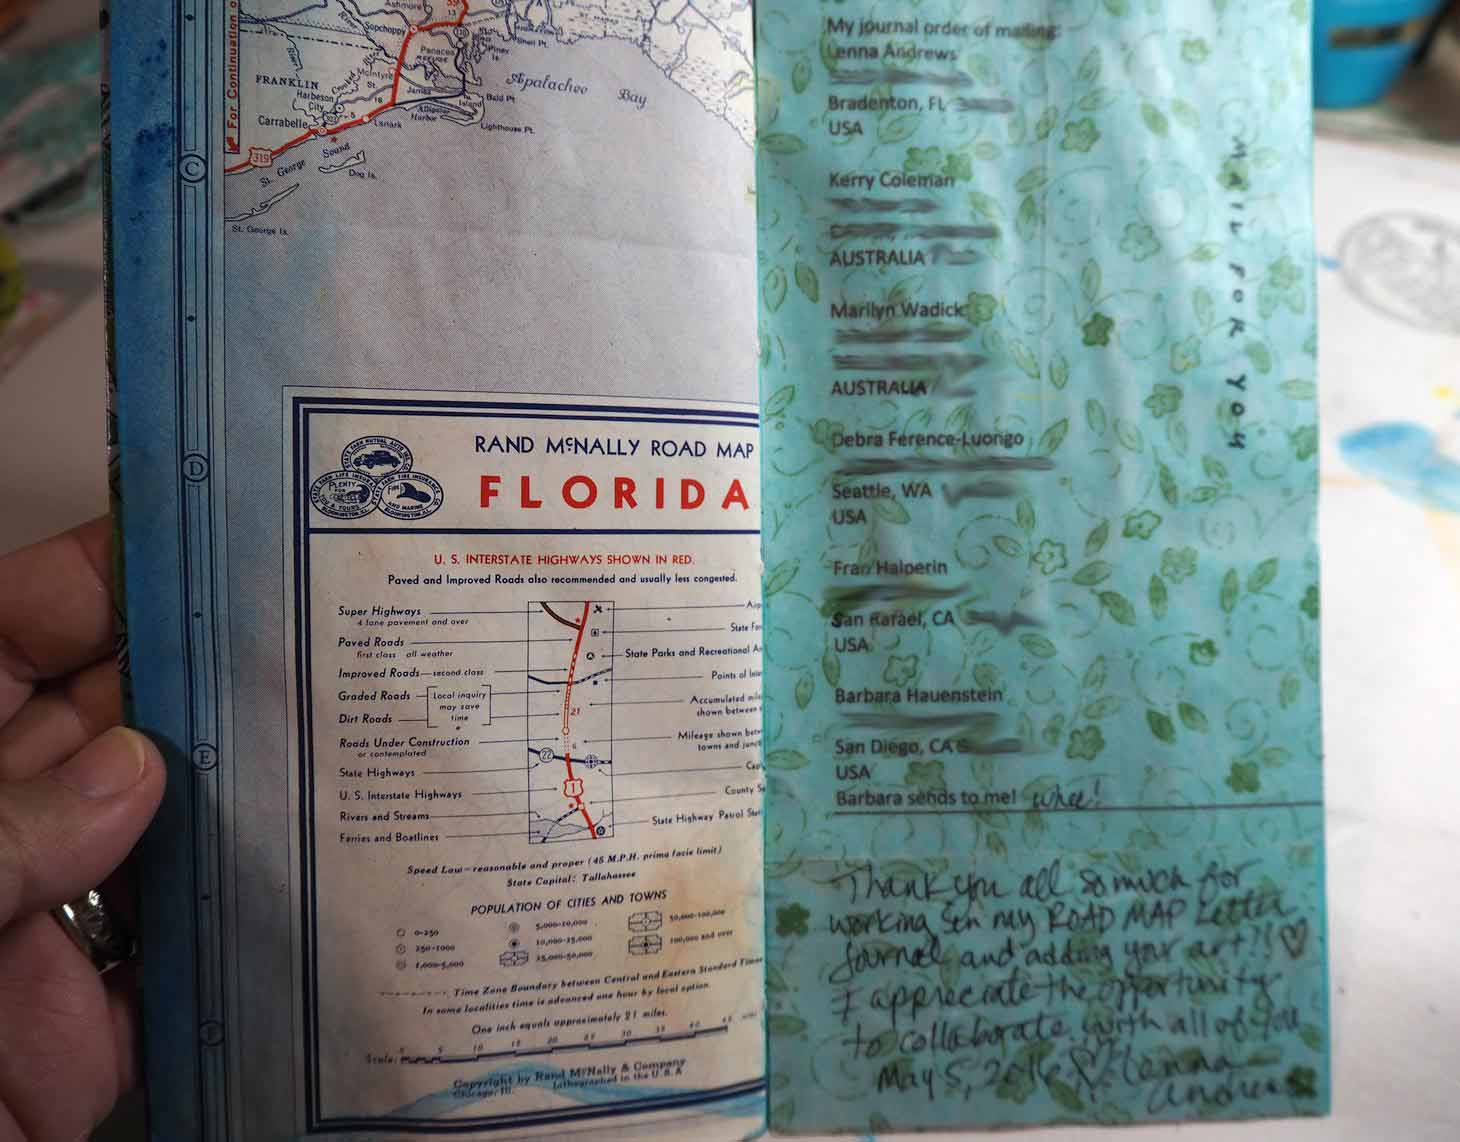 For Continuation o
Ashmore
59
13
Sopchoppy
Panacea
REFUGE
Piney
Is.
Shell Pt.
River
FRANKLIN
McIntyre
St.
Harbeson
City
James
Island
Bald Pt
Alligator
Harbor
Lighthouse Pt.
Carrabelle
5
18
Lanark
Apalachee Bay
319
St. George Sound
Dog Is.
St. George Is.
C
D
E
F
STATE FARM MUTUAL AUTO INS. CO.
STATE FARM LIFE INSURANCE
STATE FARM FIRE INSURANCE CO.
PLENTY
FOR
FIRE
AND MARINE
BLOOMINGTON, ILL.
BLOOMINGTON, ILL.
RAND McNALLY ROAD MAP
FLORIDA
U. S. INTERSTATE HIGHWAYS SHOWN IN RED.
Paved and Improved Roads also recommended and usually less congested.
Super Highways
4 lane pavement and over
Paved Roads
first class all weather
Improved Roads—second class
Graded Roads
Local inquiry
may save
time
Dirt Roads
Roads Under Construction
or contemplated
State Highways
U. S. Interstate Highways
Rivers and Streams
Ferries and Boatlines
21
6
22
1
Airp
State For
State Parks and Recreational A
Points of Inte
Accumulated mile
shown between
Mileage shown betw
towns and juncti
Cap
County Se
State Highway Patrol Stat
Speed Law—reasonable and proper (45 M.P.H. prima facie limit)
State Capital: Tallahassee
POPULATION OF CITIES AND TOWNS
0-250
250-1000
1,000-5,000
5,000-10,000
10,000-25,000
25,000-50,000
50,000-100,000
100,000 and over
Time Zone Boundary between Central and Eastern Standard Times
In some localities time is advanced one hour by local option.
One inch equals approximately 21 miles.
Scale: 0 5 10 15 20 25 30 35 40 45
Copyright by Rand McNally & Company
Chicago, Ill. Lithographed in the U.S.A
My journal order of mailing:
Lenna Andrews
Bradenton, FL
USA
Kerry Coleman
AUSTRALIA
Marilyn Wadick
AUSTRALIA
Debra Ference-Luongo
Seattle, WA
USA
Fran Halperin
San Rafael, CA
USA
Barbara Hauenstein
San Diego, CA
USA
Barbara sends to me! whee!
MAIL FOR YOU
Thank you all so much for
working in my ROAD MAP Letter
Journal and adding your art?!! ♡
I appreciate the opportunity
to collaborate with all of you
May 5, 2016 ♡ Lenna
Andrews